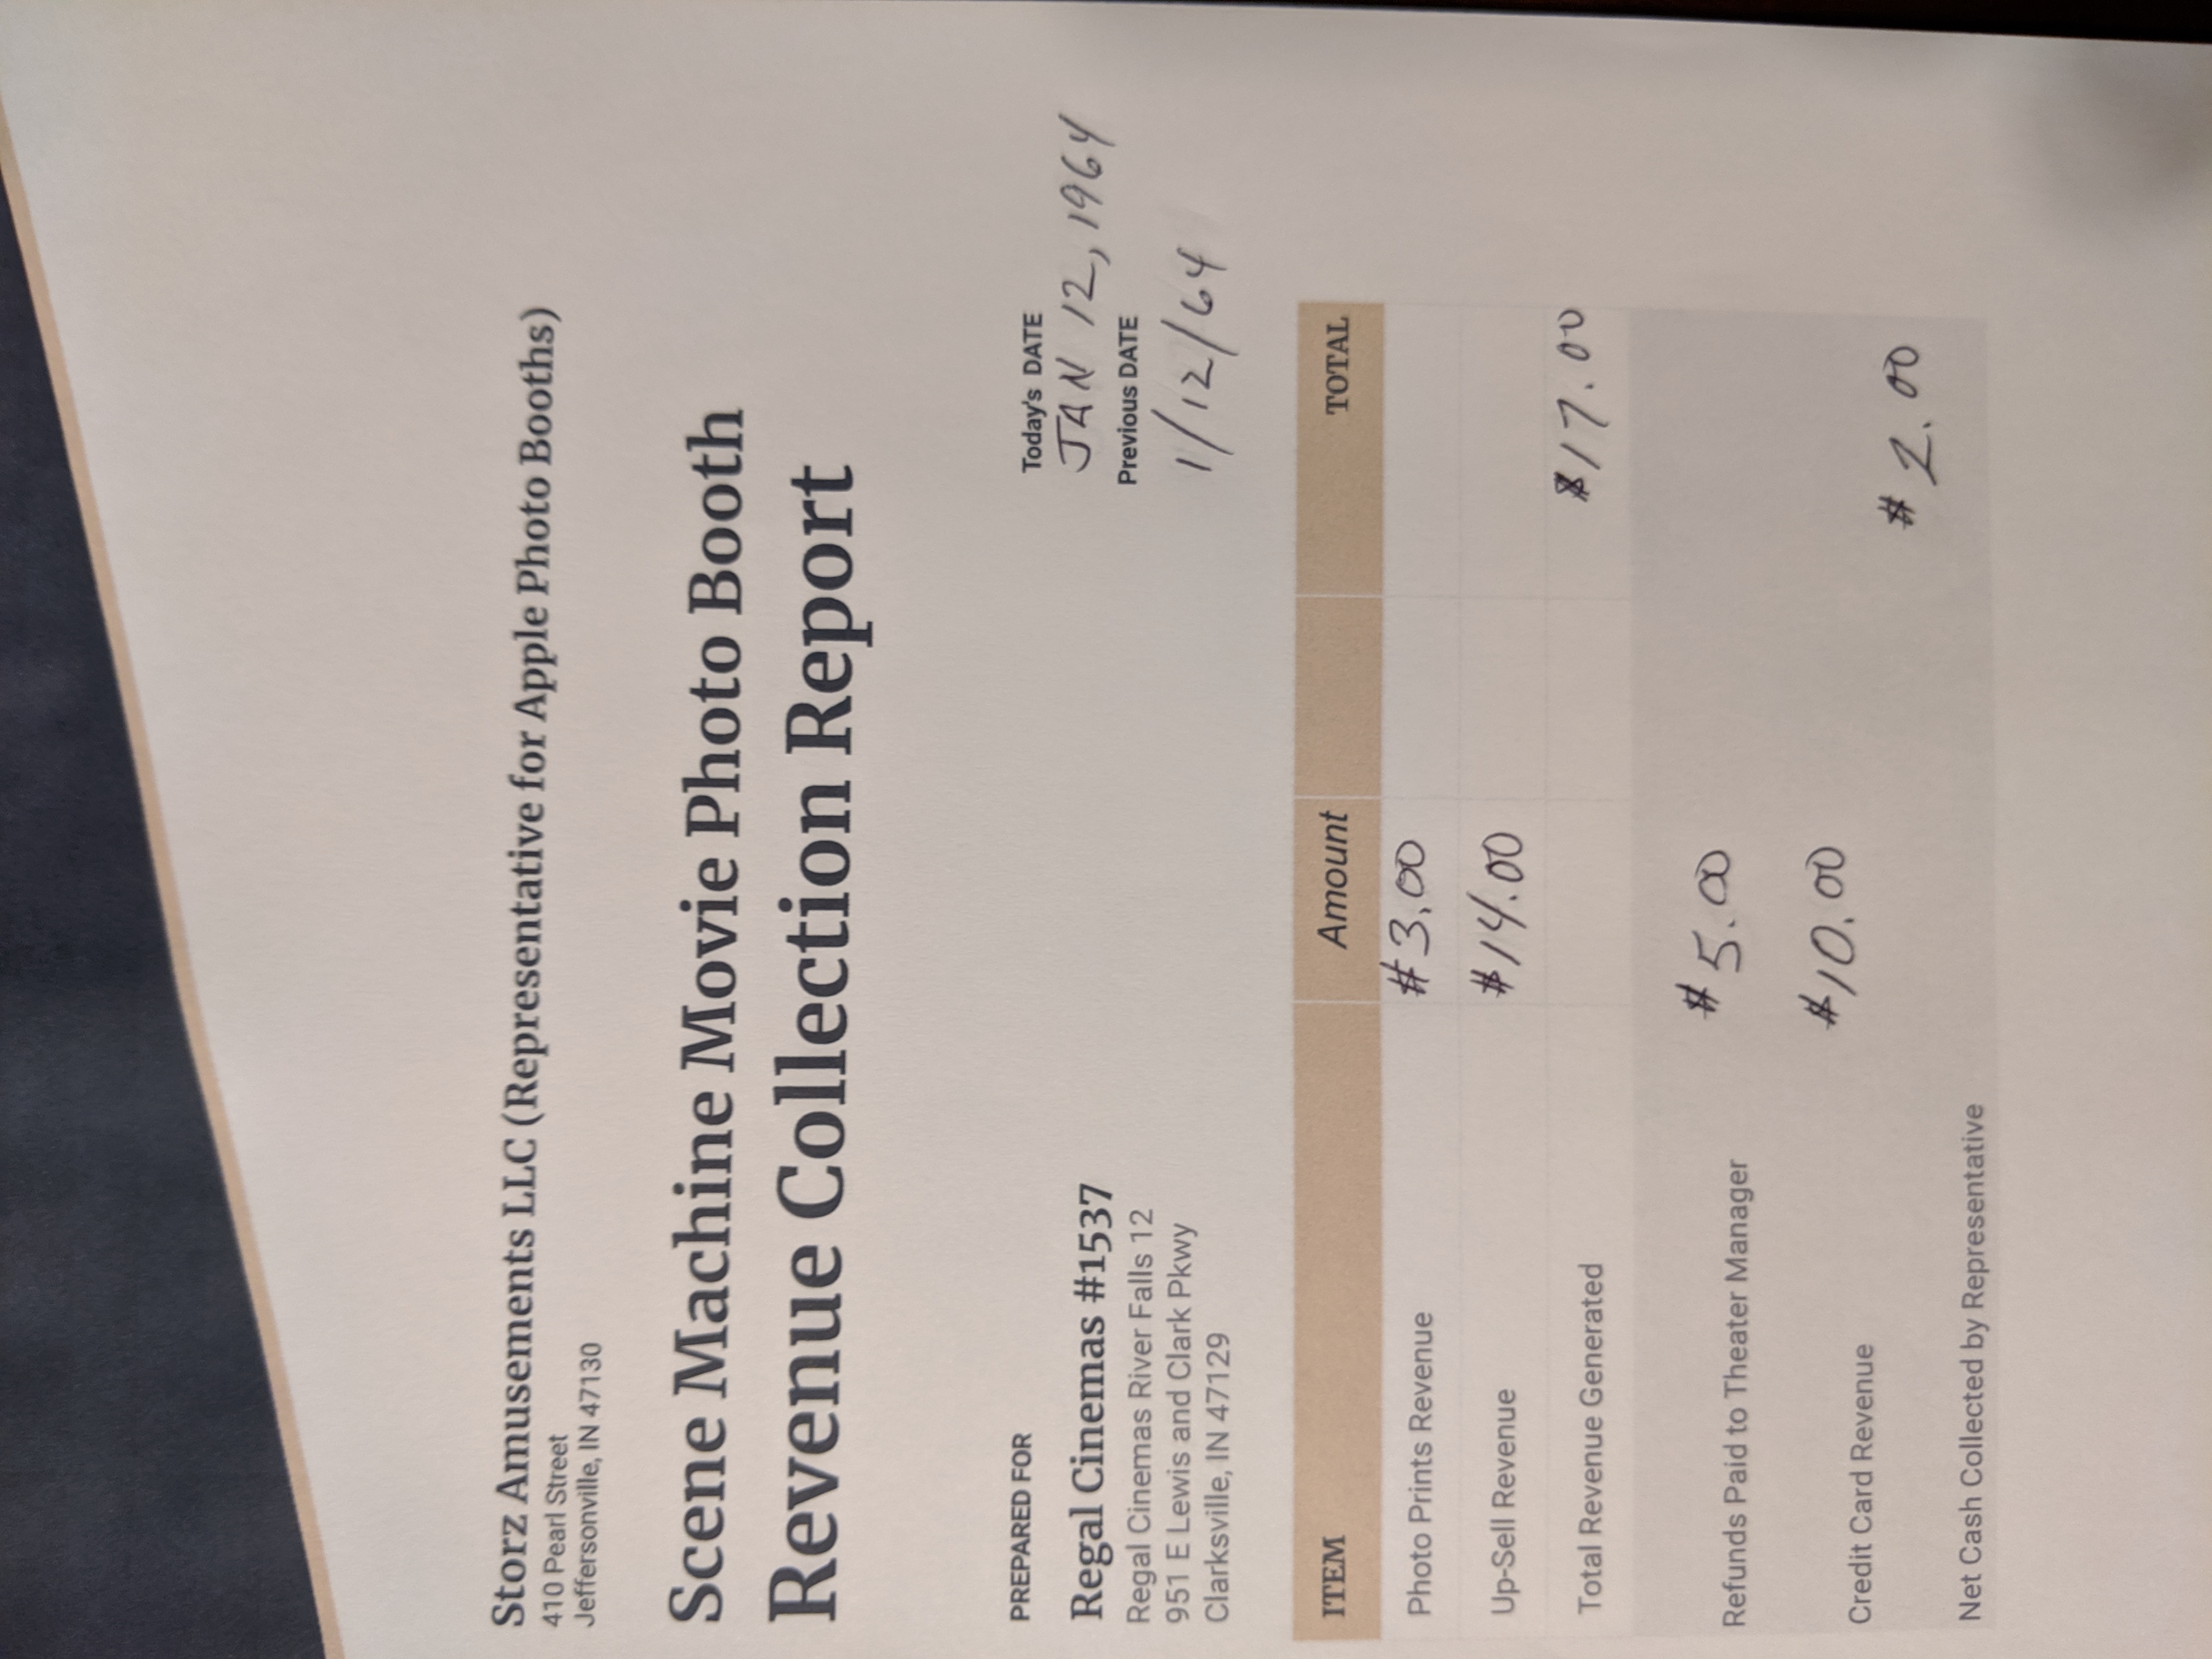 Storz Amusements LLC (Representative for Apple Photo Booths)
410 Pearl Street
Jeffersonville, IN 47130
Scene Machine Movie Photo Booth
Revenue Collection Report
PREPARED FOR
Regal Cinemas #1537
Regal Cinemas River Falls 12
951 E Lewis and Clark Pkwy
Clarksville, IN 47129
Today's DATE
JAN 12, 1964
Previous DATE
1/12/64
ITEM Amount TOTAL
Photo Prints Revenue $3.00
Up-Sell Revenue $14.00
Total Revenue Generated $17.00
Refunds Paid to Theater Manager $5.00
Credit Card Revenue $10.00
Net Cash Collected by Representative $2.00